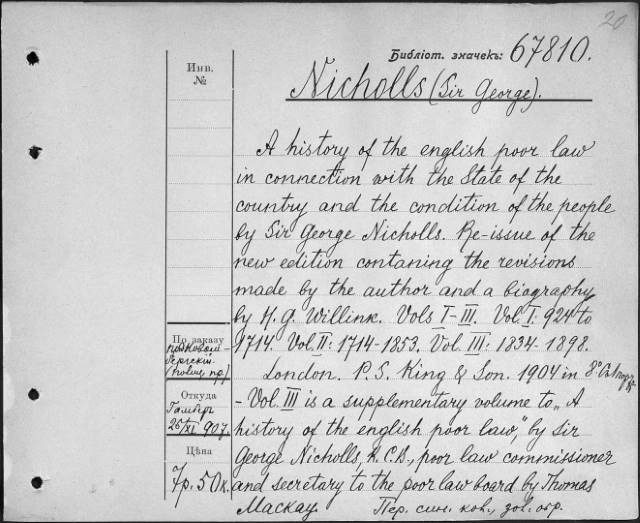 20
Библіот. значекъ: 67810.
Инв.
№
Nicholls (Sir George).
A history of the english poor law
in connection with the State of the
country and the condition of the people
by Sir George Nicholls. Re-issue of the
new edition contaning the revisions
made by the author and a biography
by H. G. Willink. Vols I-III. Vol. I: 924 to
1714. Vol. II: 1714-1853. Vol. III: 1834-1898.
London. P. S. King & Son. 1904 in 8°
- Vol. III is a supplementary volume to „A
history of the english poor law," by Sir
George Nicholls, K.C.B., poor law commissioner
and secretary to the poor law board by Thomas
Mackay. Пер. син. кол., зол. обр.
По заказу
Откуда
26/XI 907.
Цѣна
7р. 50к.